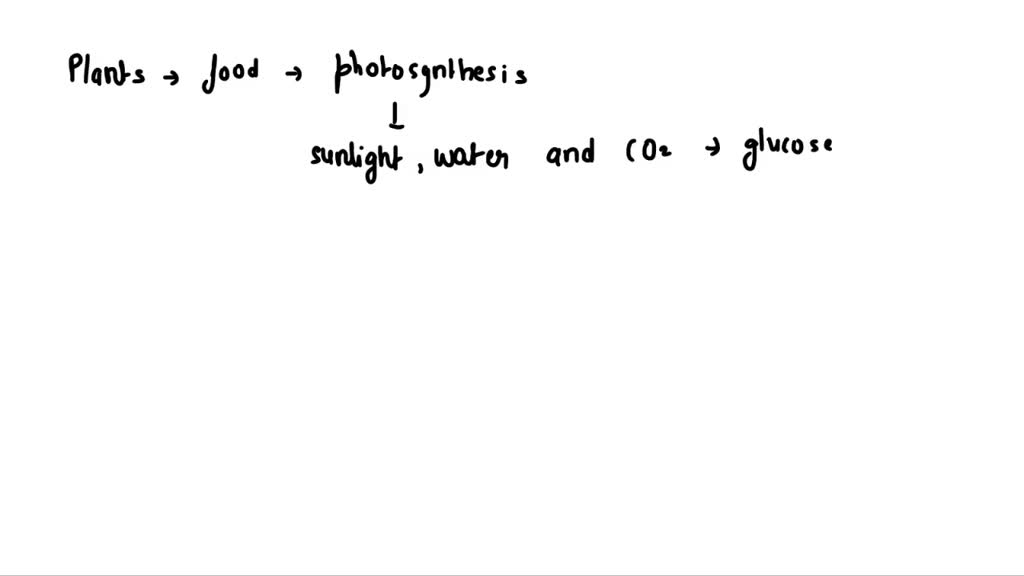 Plants → food → photosynthesis
↓
sunlight, water and CO₂ → glucose